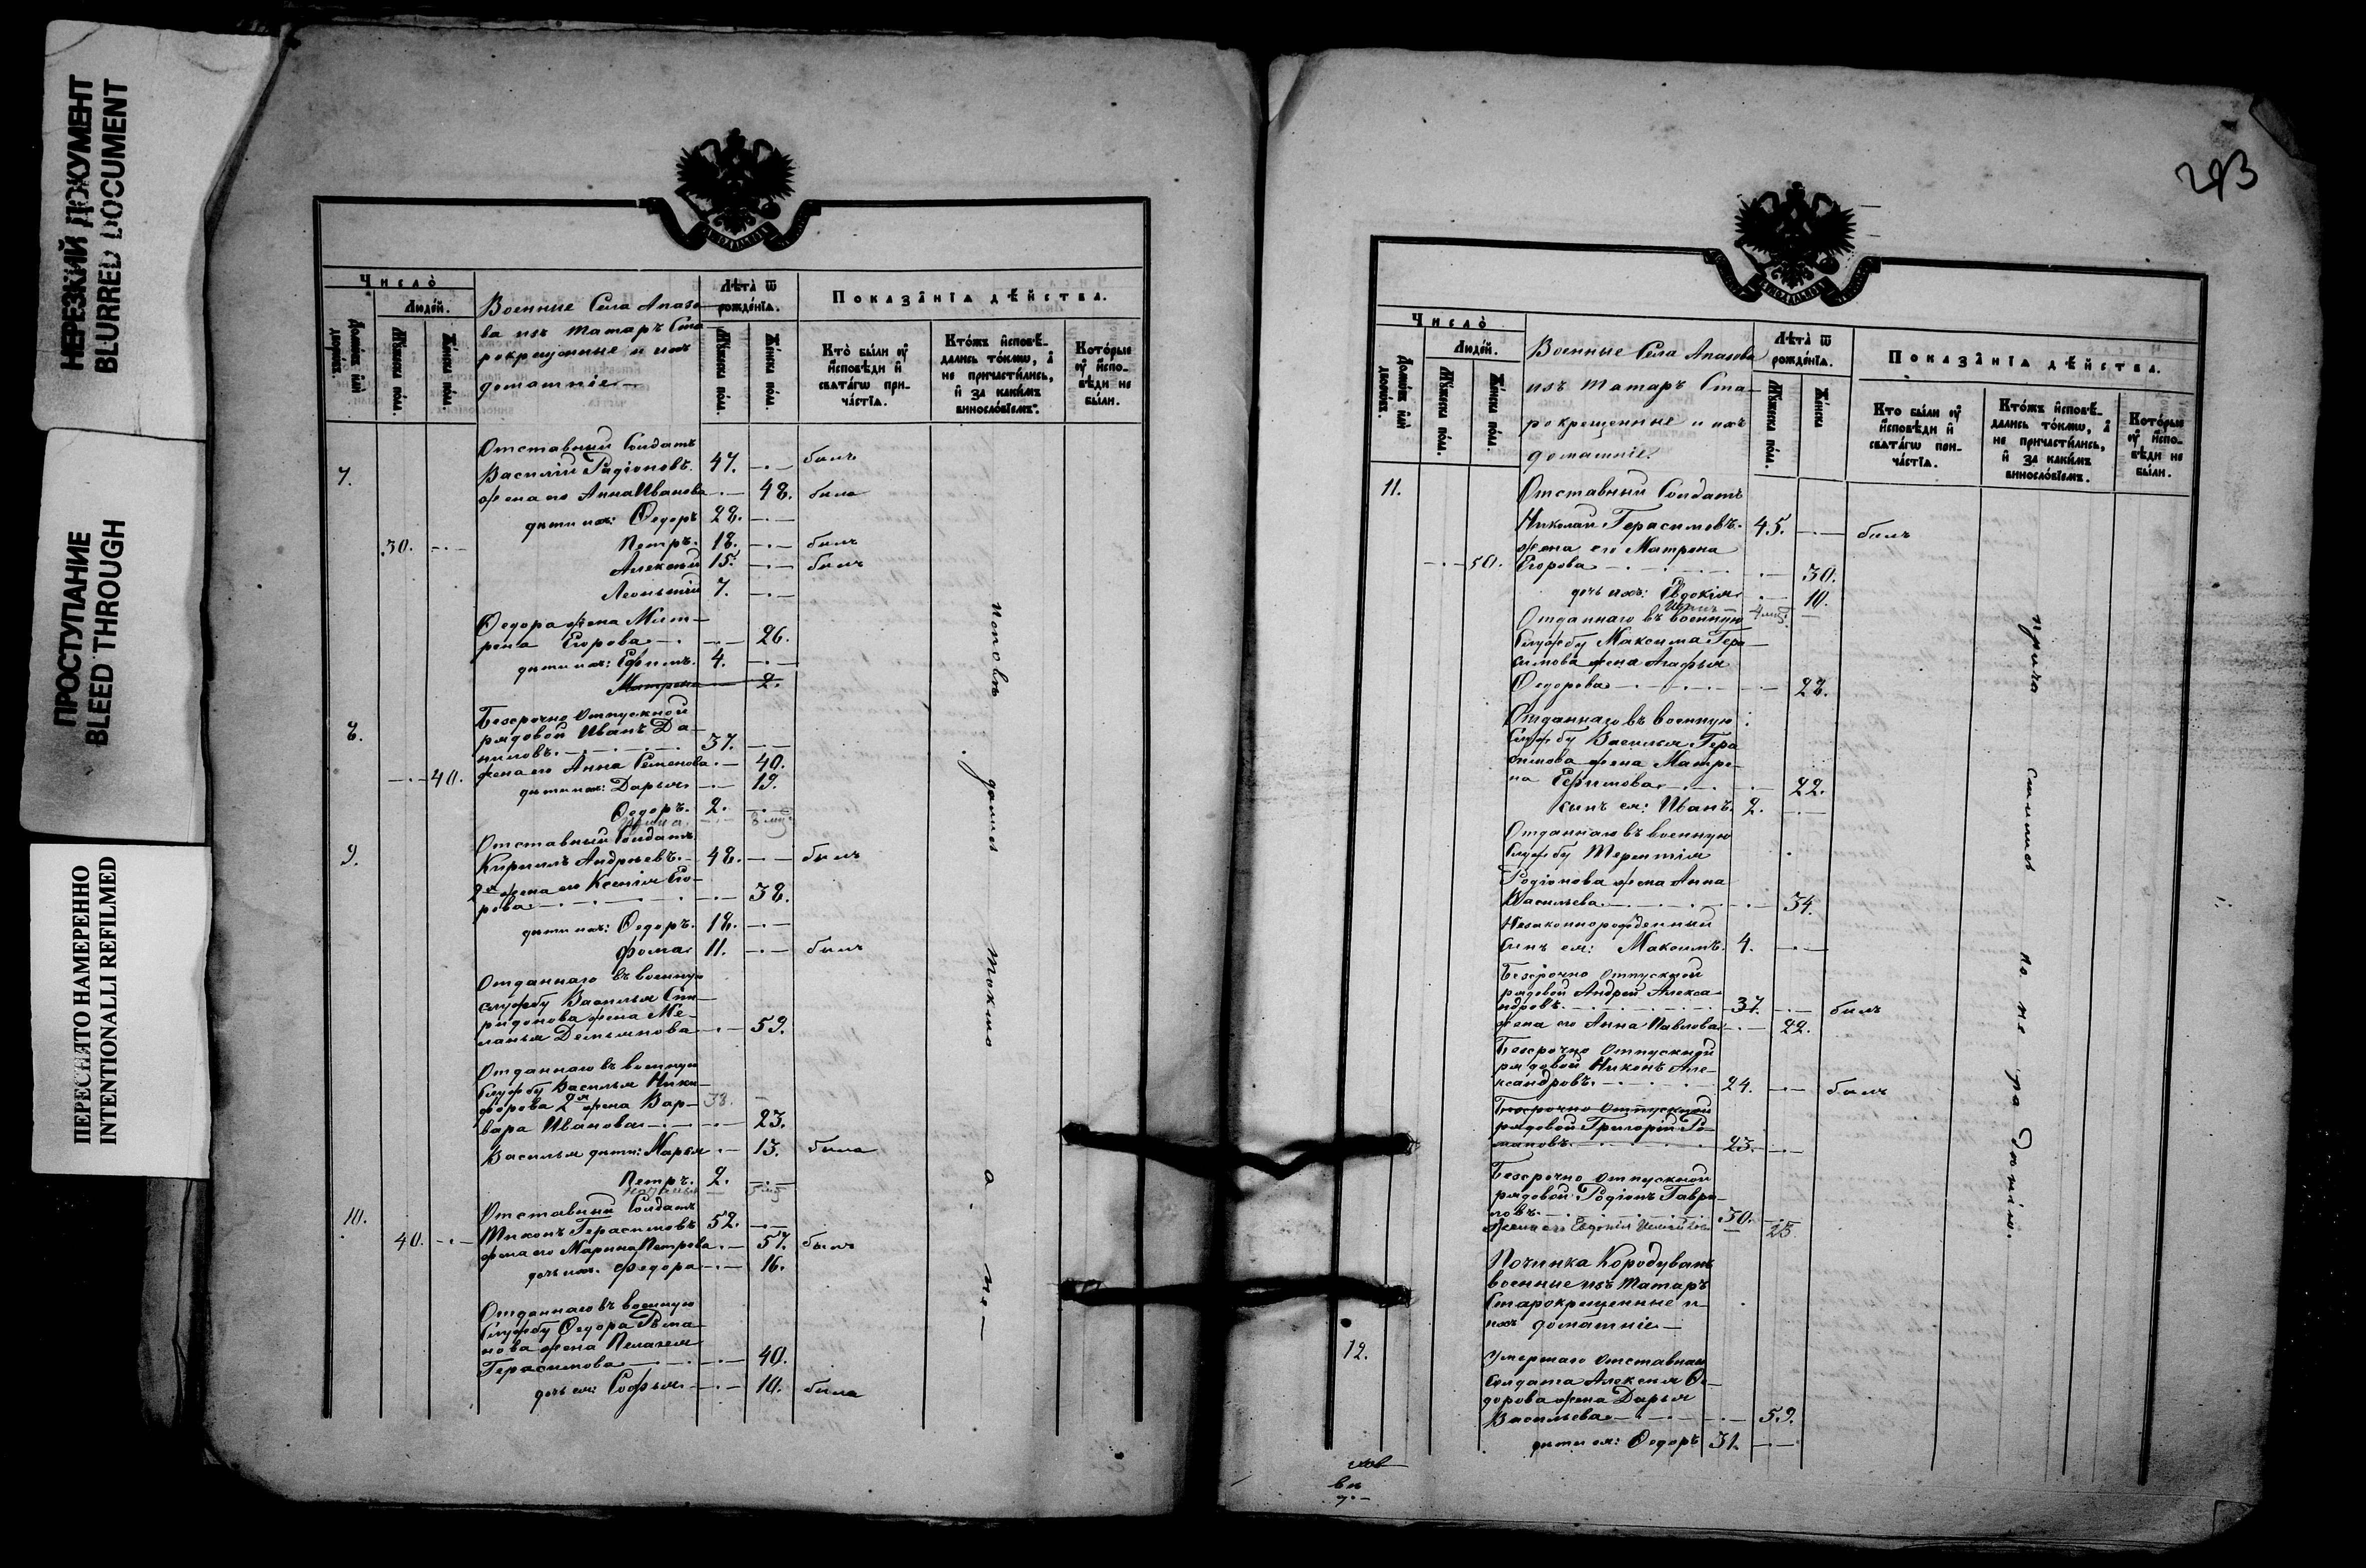 НЕРЕЗКИЙ ДОКУМЕНТ
BLURRED DOCUMENT
ПРОСТУПАНИЕ
BLEED THROUGH
ПЕРЕСНЯТО НАМЕРЕННО
INTENTIONALLI REFILMED
Число̀
Домо́въ и҆лѝ дворо́въ.
Люде́й.
Мꙋ́жеска по́ла.
Же́нска по́ла.
Военные Села Апазо
ва изъ татаръ Ста
рокрещенные и ихъ
домашніе —
Лѣ́та ѿ рожде́нїѧ.
Мꙋ́жеска по́ла.
Же́нска по́ла.
Показа̑нїѧ дѣ́йства.
Кто̀ бы́ли ᲂу҆ и҆сповѣ́ди и҆ свѧта́гѡ при-
ча́стїѧ.
Кто́жъ и҆сповѣ́-
дались то́кмѡ, а҆
не причасти́лись,
и҆ за каки́мъ
винослов́їемъ.
Кото́рые
ᲂу҆ и҆спо-
вѣ́ди не
бы́ли.
Отставный Солдатъ
7. Василій Родіоновъ. 47. —·— былъ
жена его Анна Иванова —·— 48. была
дѣти ихъ: Ѳедоръ 28. —·—
30. —·— Петръ. 18. —·— былъ
Алексѣй 15. —·— былъ
Леонтій 7. —·—
Ѳедора жена Мат—
рена Егорова —·— 26.
дѣти ихъ: Ефимъ. 4. —·—
Матрена 2.
8. Безсрочно отпускной
рядовой Иванъ Да—
ниловъ. 37. —·—
жена его Анна Семенова —·— 40.
—·— 40. дѣти ихъ: Дарья —·— 19.
Ѳедоръ. 2. —·—
Отставный Солдатъ
9. Кириллъ Андреевъ. 48. —·— былъ
2я жена его Ксенія Его—
рова —·— 38.
дѣти ихъ: Ѳедоръ. 18. —·—
Фома 11. —·— былъ
Отданнаго въ военную
службу Василья Спи—
ридонова жена Ме—
ланья Демьянова —·— 59.
Отданнаго въ военную
Службу Василья Ники—
форова 2я жена Вар— 38. —
вара Иванова —·— 23.
Василья дѣти: Марья —·— 13. была
Петръ. 2. —·—
10. Отставный Солдатъ
Тихонъ Герасимовъ 52. —·—
40. —·— жена его Марина Петрова —·— 57. былъ
дочь ихъ: Федора —·— 16.
Отданнаго въ военную
Службу Ѳедора Рома
нова жена Пелагея
Герасимова —·— 40.
дочь ея: Софья —·— 10. была
исповѣ дались токмо а не—
293
Число̀
Домо́въ и҆лѝ дворо́въ.
Люде́й.
Мꙋ́жеска по́ла.
Же́нска по́ла.
Военные Села Апазова
изъ татаръ Ста—
рокрещенные и ихъ
домашніе.
Лѣ́та ѿ рожде́нїѧ.
Мꙋ́жеска по́ла.
Же́нска
Показа̑нїѧ дѣ́йства.
Кто̀ бы́ли ᲂу҆ и҆сповѣ́ди и҆ свѧта́гѡ при-
ча́стїѧ.
Кто́жъ и҆сповѣ́-
дались то́кмѡ, а҆
не причасти́лись,
и҆ за каки́мъ
винослов́їемъ.
Кото́рые
ᲂу҆ и҆спо-
вѣ́ди не
бы́ли.
11. Отставный Солдатъ
Николай Герасимовъ. 45. —·— былъ
жена его Матрена
—·— 50. Егорова —·— 30.
дочь ихъ: Евдокія —·— 10.
Отданнаго въ военную
Службу Максима Гера—
симова жена Агафья
Ѳедорова —·— 28.
Отданнаго въ военную
Службу Василья Гера
симова жена Матре—
на Ефимова —·— 22.
сынъ ея: Иванъ. 2. —·—
Отданнаго въ военную
Службу Терентія
Родіонова жена Анна
Васильева —·— 34.
Незаконнорожденный
сынъ ея: Максимъ. 4. —·—
Безсрочно отпускной
рядовой Андрей Алекса—
ндровъ. 37. —·— былъ
жена его Анна Павлова —·— 22.
Безсрочно отпускной
рядовой Никонъ Але—
ксандровъ. 24. —·— былъ
Безсрочно отпускной
рядовой Григорій Ро—
мановъ. 23. —·—
Безсрочно отпускной
рядовой Родіонъ Гаври—
ловъ. 30. —·—
жена его Евдокія — 25
Починка Кородуванъ
военные изъ татаръ
Старокрещенные и
ихъ домашніе —
12. Умершаго отставнаго
Солдата Алексея Ѳе—
дорова жена Дарья
Васильева —·— 59.
дѣти ея: Ѳедоръ 31. —·—
прича стились по не радѣнію.